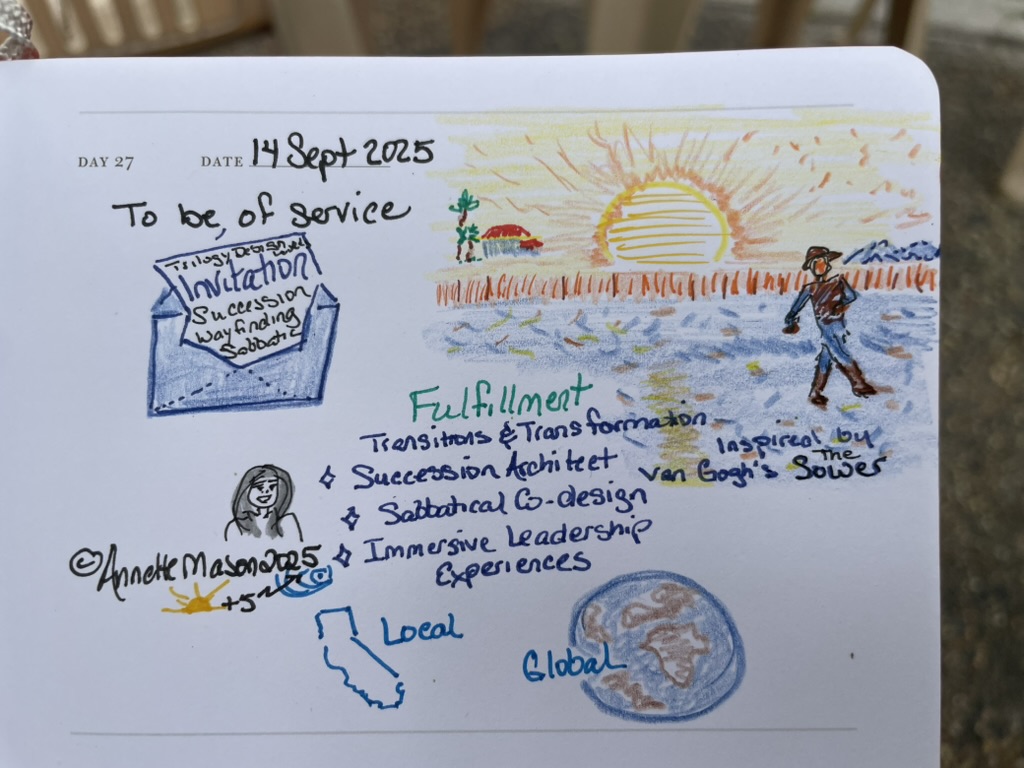 DAY 27 DATE 14 Sept 2025
To be, of service
Trilogy Design
Invitation
Succession
Wayfinding
Sabbatic
Fulfillment
Transitions & Transformation
Succession Architect
Sabbatical Co-design
Immersive Leadership
Experiences
Inspired by
Van Gogh's The Sower
© Annette Mason 2025
+5
Local
Global